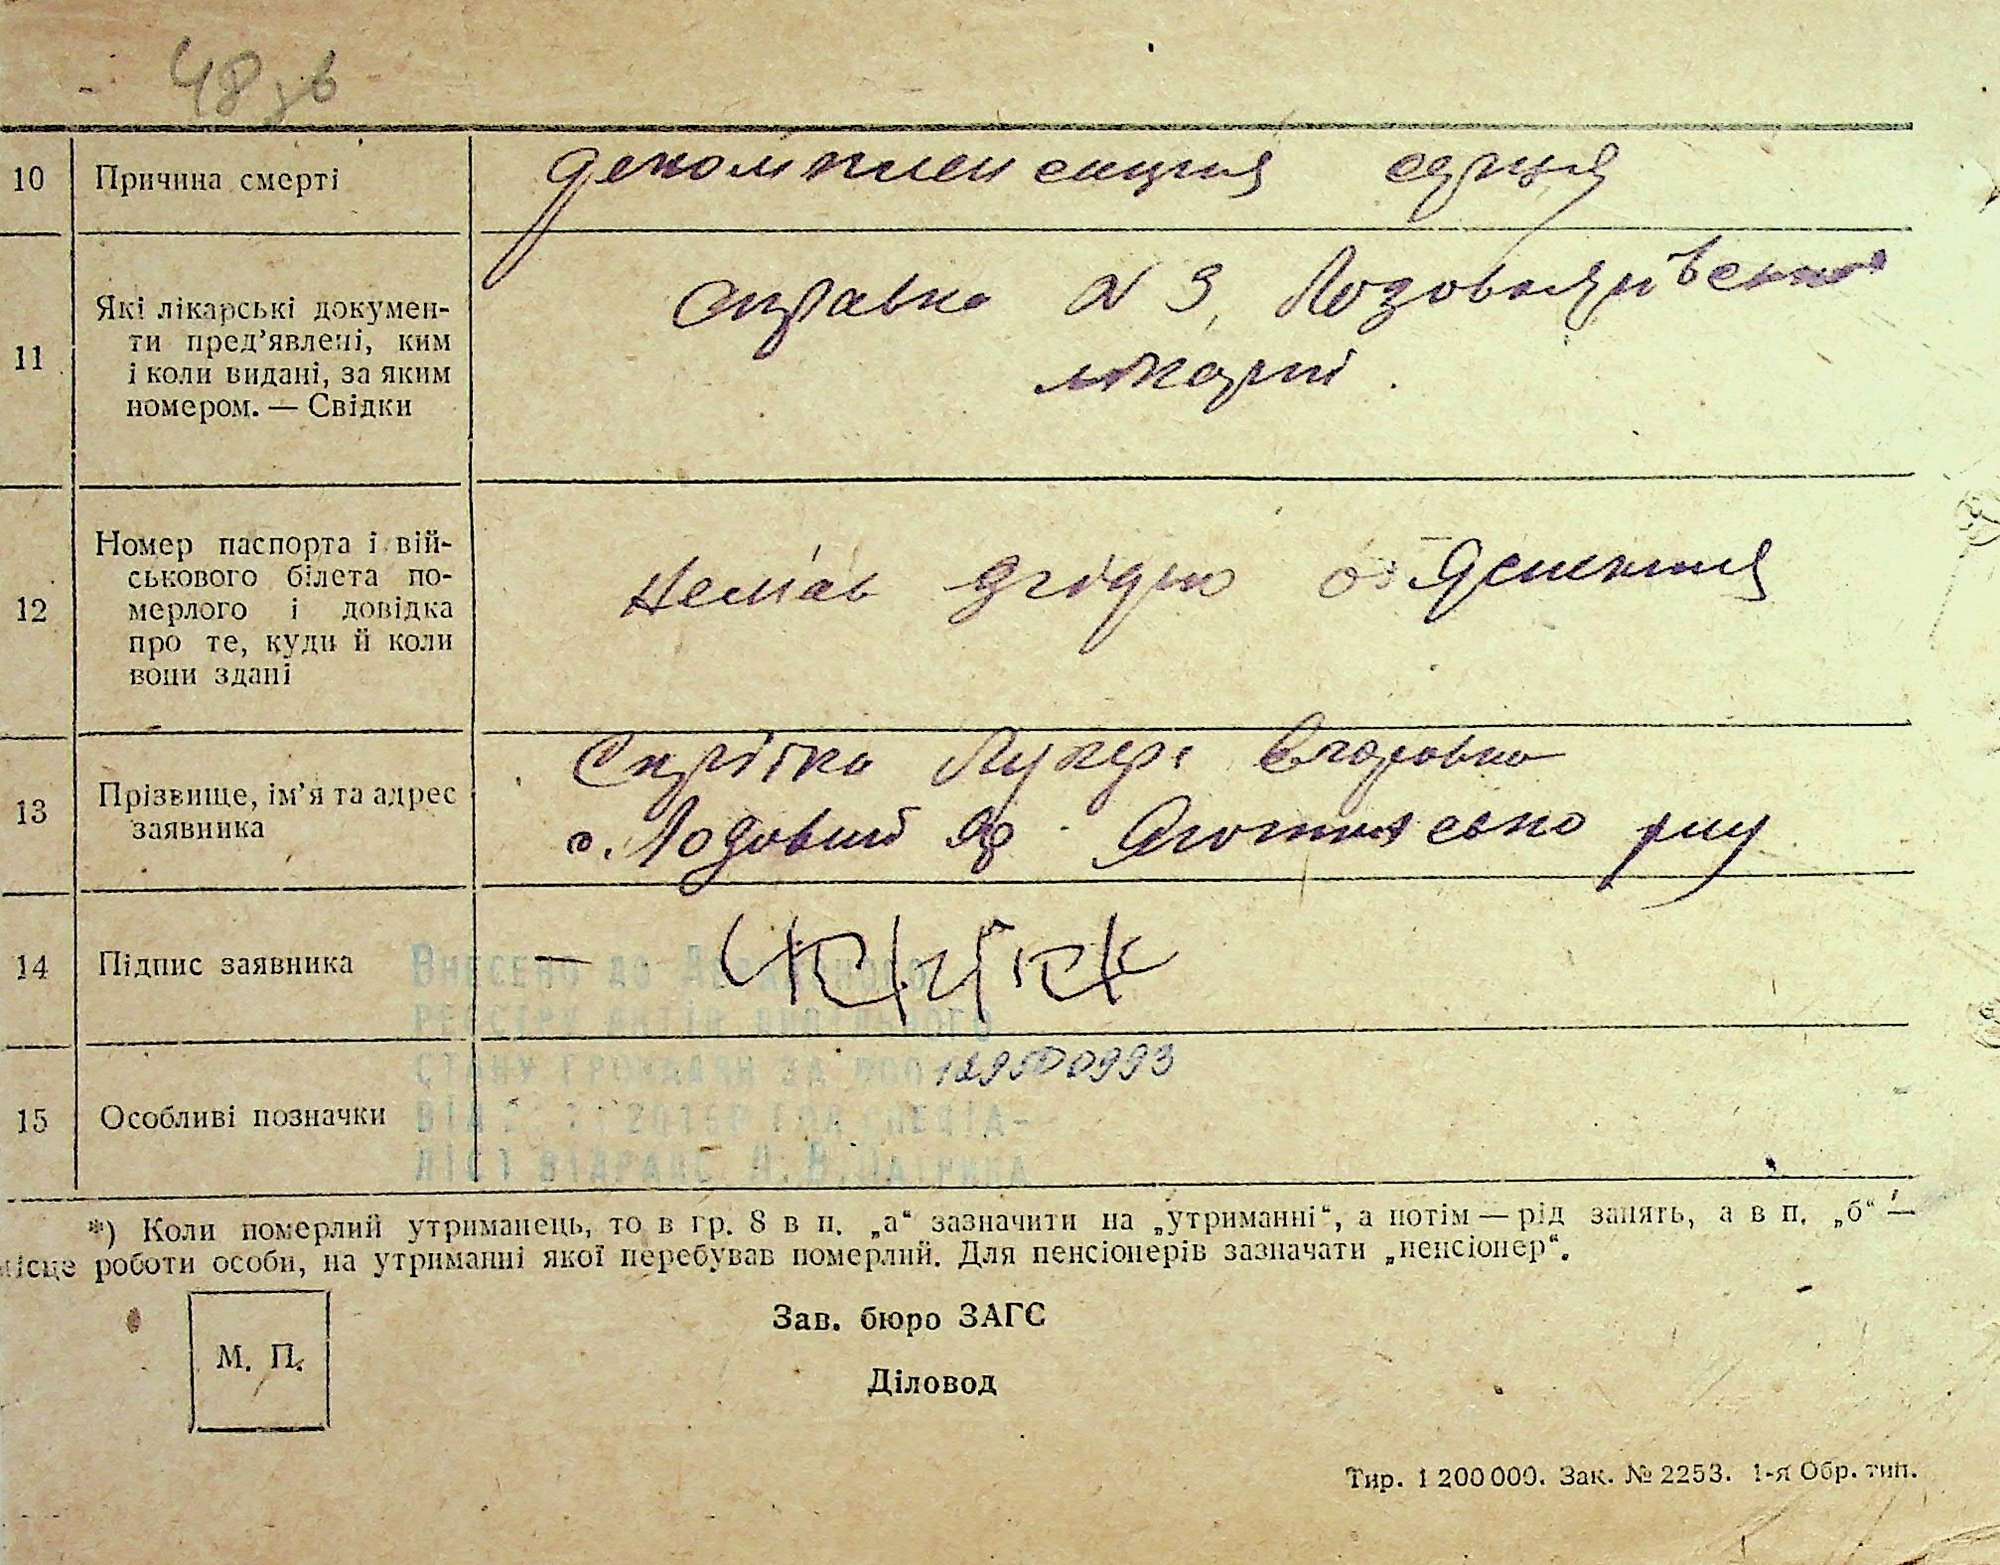 48зв
10 Причина смерті декомпиенсация серця
11 Які лікарські докумен-
ти пред’явлені, ким
і коли видані, за яким
номером. — Свідки
справка N 3, Лозовоярівської
лікарні.
12 Номер паспорта і вій-
ськового білета по-
мерлого і довідка
про те, куди й коли
вони здані
Немає згідно обяснення
13 Прізвище, ім’я та адрес
заявника
Лукер
с. Лозовий Яр Яготинсько рну
14 Підпис заявника —
15 Особливі позначки
Внесено до Державного
реєстру актів цивільного
стану громадян за №00 129500993
*) Коли померлий утриманець, то в гр. 8 в п. „а“ зазначити на „утриманні“, а потім — рід занять, а в п. „б“ —
місце роботи особи, на утриманні якої перебував померлий. Для пенсіонерів зазначати „пенсіонер“.
Зав. бюро ЗАГС
М. П.
Діловод
Тир. 1 200 000. Зак. № 2253. 1-я Обр. тип.